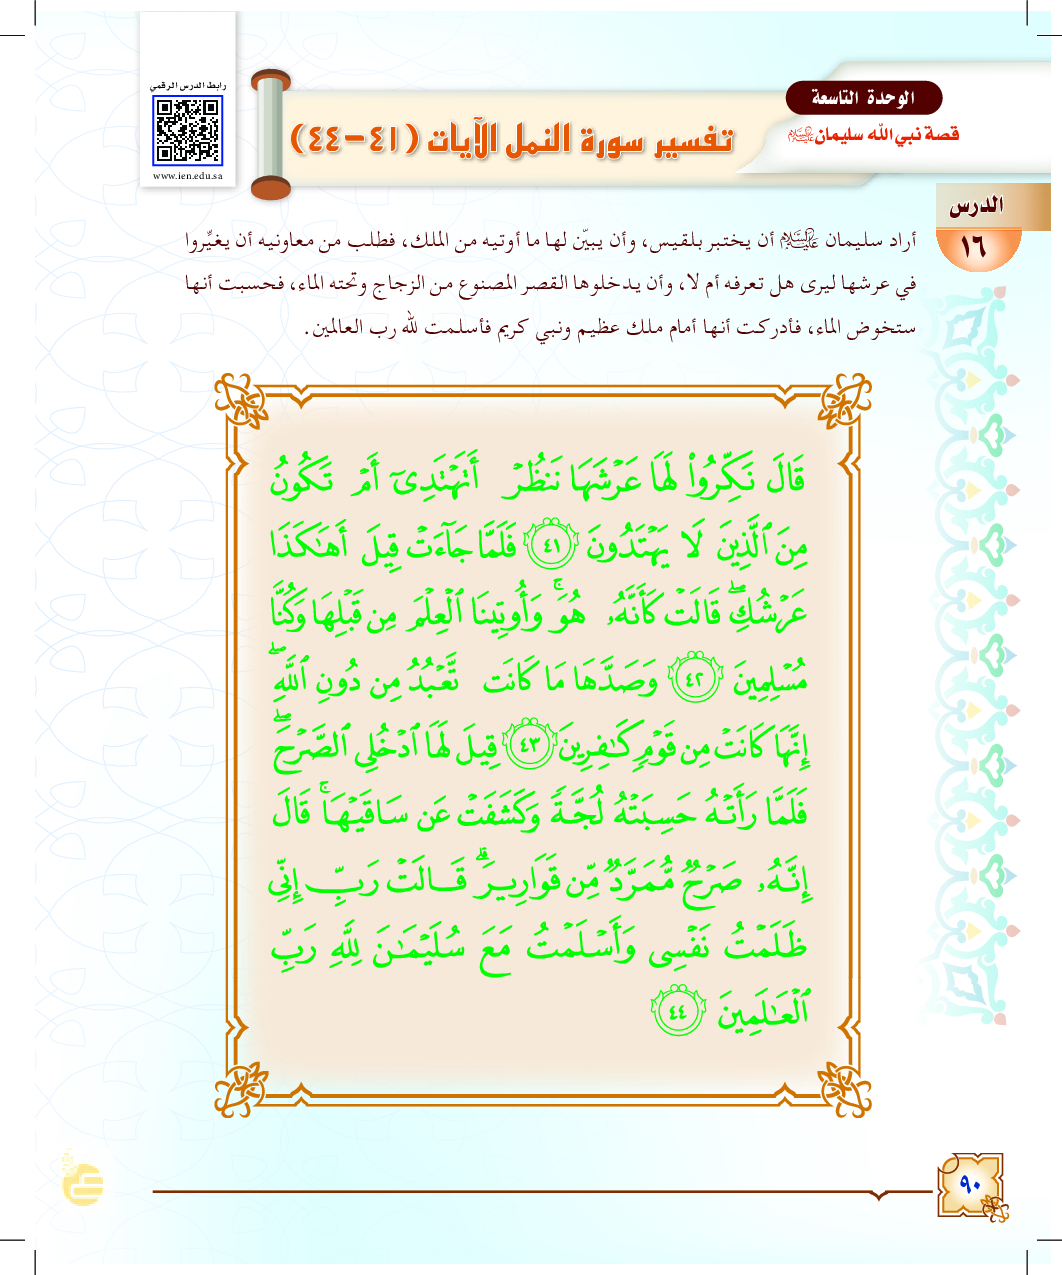 رابط الدرس الرقمي
www.ien.edu.sa
الوحدة التاسعة
قصة نبي الله سليمان عليه السلام
تفسير سورة النمل الآيات (٤١-٤٤)
الدرس
١٦
أراد سليمان عليه السلام أن يختبر بلقيس، وأن يبيّن لها ما أوتيه من الملك، فطلب من معاونيه أن يغيِّروا
في عرشها ليرى هل تعرفه أم لا، وأن يدخلوها القصر المصنوع من الزجاج وتحته الماء، فحسبت أنها
ستخوض الماء، فأدركت أنها أمام ملك عظيم ونبي كريم فأسلمت لله رب العالمين.
قَالَ نَكِّرُواْ لَهَا عَرۡشَهَا نَنظُرۡ أَتَهۡتَدِيٓ أَمۡ تَكُونُ
مِنَ ٱلَّذِينَ لَا يَهۡتَدُونَ ٤١ فَلَمَّا جَآءَتۡ قِيلَ أَهَٰكَذَا
عَرۡشُكِۖ قَالَتۡ كَأَنَّهُۥ هُوَۚ وَأُوتِينَا ٱلۡعِلۡمَ مِن قَبۡلِهَا وَكُنَّا
مُسۡلِمِينَ ٤٢ وَصَدَّهَا مَا كَانَت تَّعۡبُدُ مِن دُونِ ٱللَّهِۖ
إِنَّهَا كَانَتۡ مِن قَوۡمٖ كَٰفِرِينَ ٤٣ قِيلَ لَهَا ٱدۡخُلِي ٱلصَّرۡحَۖ
فَلَمَّا رَأَتۡهُ حَسِبَتۡهُ لُجَّةٗ وَكَشَفَتۡ عَن سَاقَيۡهَاۚ قَالَ
إِنَّهُۥ صَرۡحٞ مُّمَرَّدٞ مِّن قَوَارِيرَۗ قَالَتۡ رَبِّ إِنِّي
ظَلَمۡتُ نَفۡسِي وَأَسۡلَمۡتُ مَعَ سُلَيۡمَٰنَ لِلَّهِ رَبِّ
ٱلۡعَٰلَمِينَ ٤٤
٩٠